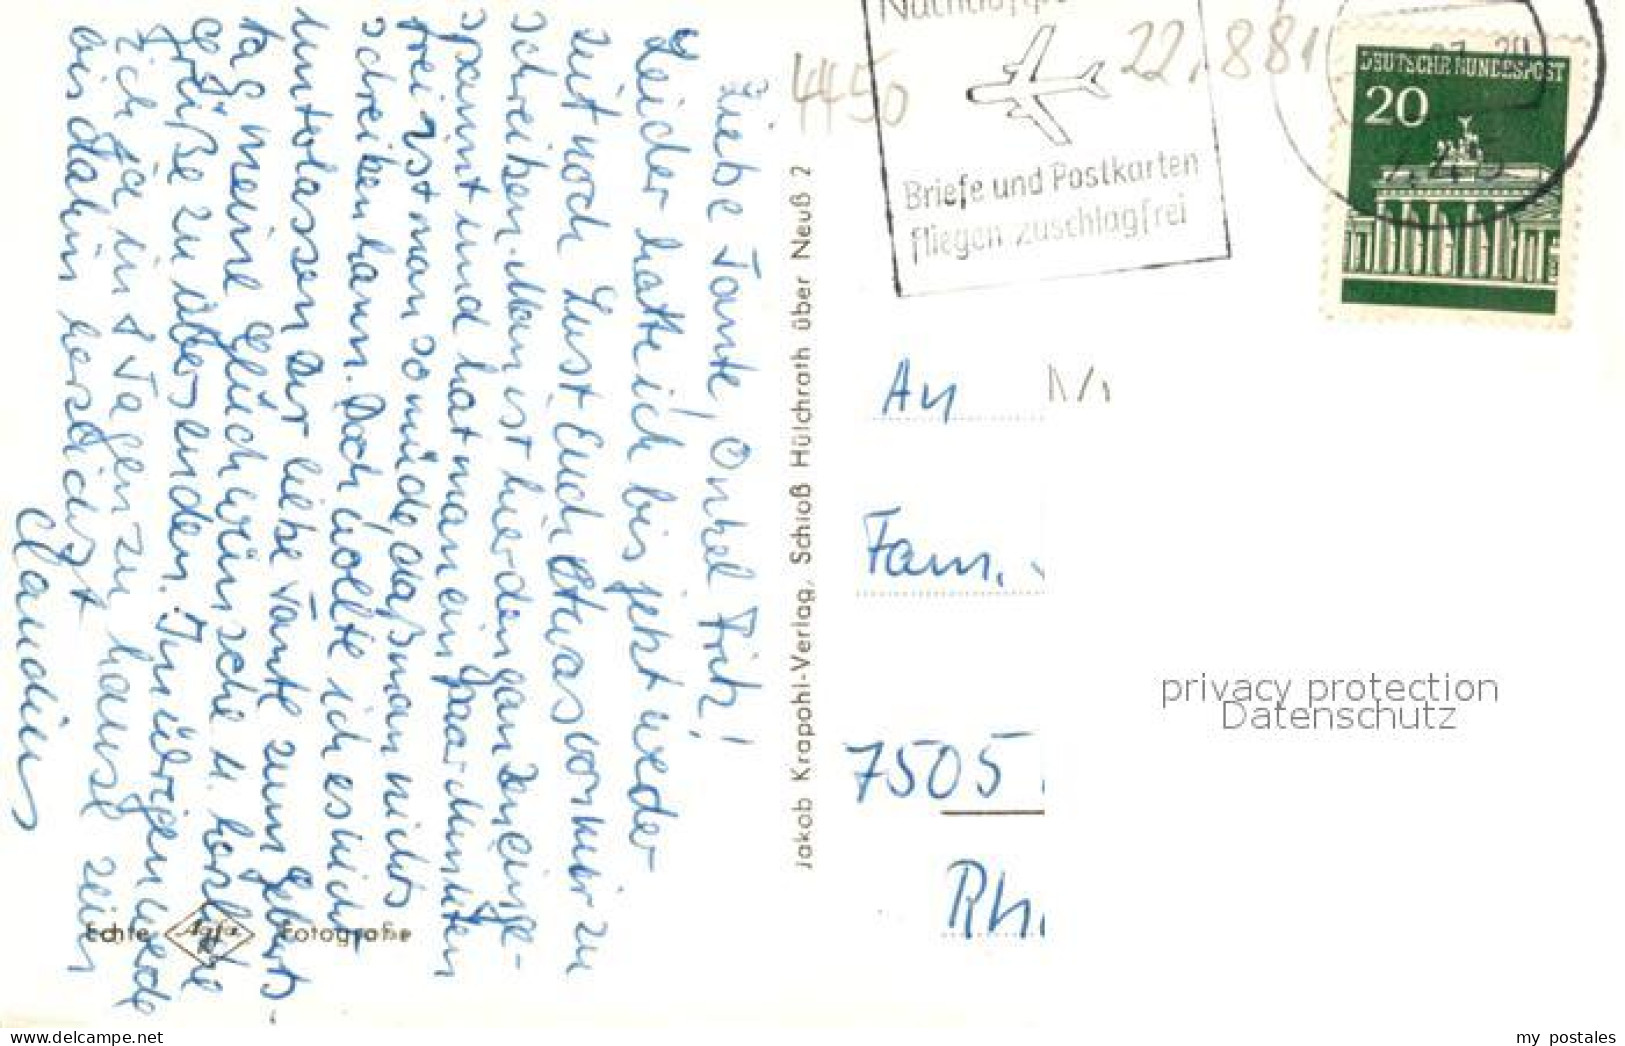 Liebe Tante, Onkel Fritz!
Leider hatte ich bis jetzt weder
Zeit noch Lust Euch etwas von mir zu
schreiben. Man ist hier den ganzen einge-
spannt und hat man ein paar Minuten
frei ist man so müde, daß man nichts
schreiben kann. Doch wollte ich es nicht
unterlassen Dir liebe Tante zum Geburts-
tag meine Glückwünsche u. herzliche
Grüße zu übersenden. Im übrigen werde
ich ja in 8 Tagen zu hause sein
bis dahin herzlichst
Claudius
Echte Agfa Fotografie
Jakob Krapohl-Verlag, Schloß Hülchrath über Neuß 2
4450
22.881
Briefe und Postkarten
fliegen zuschlagfrei
DEUTSCHE BUNDESPOST
20
An
Fam.
7505
Rh
privacy protection
Datenschutz
my postales